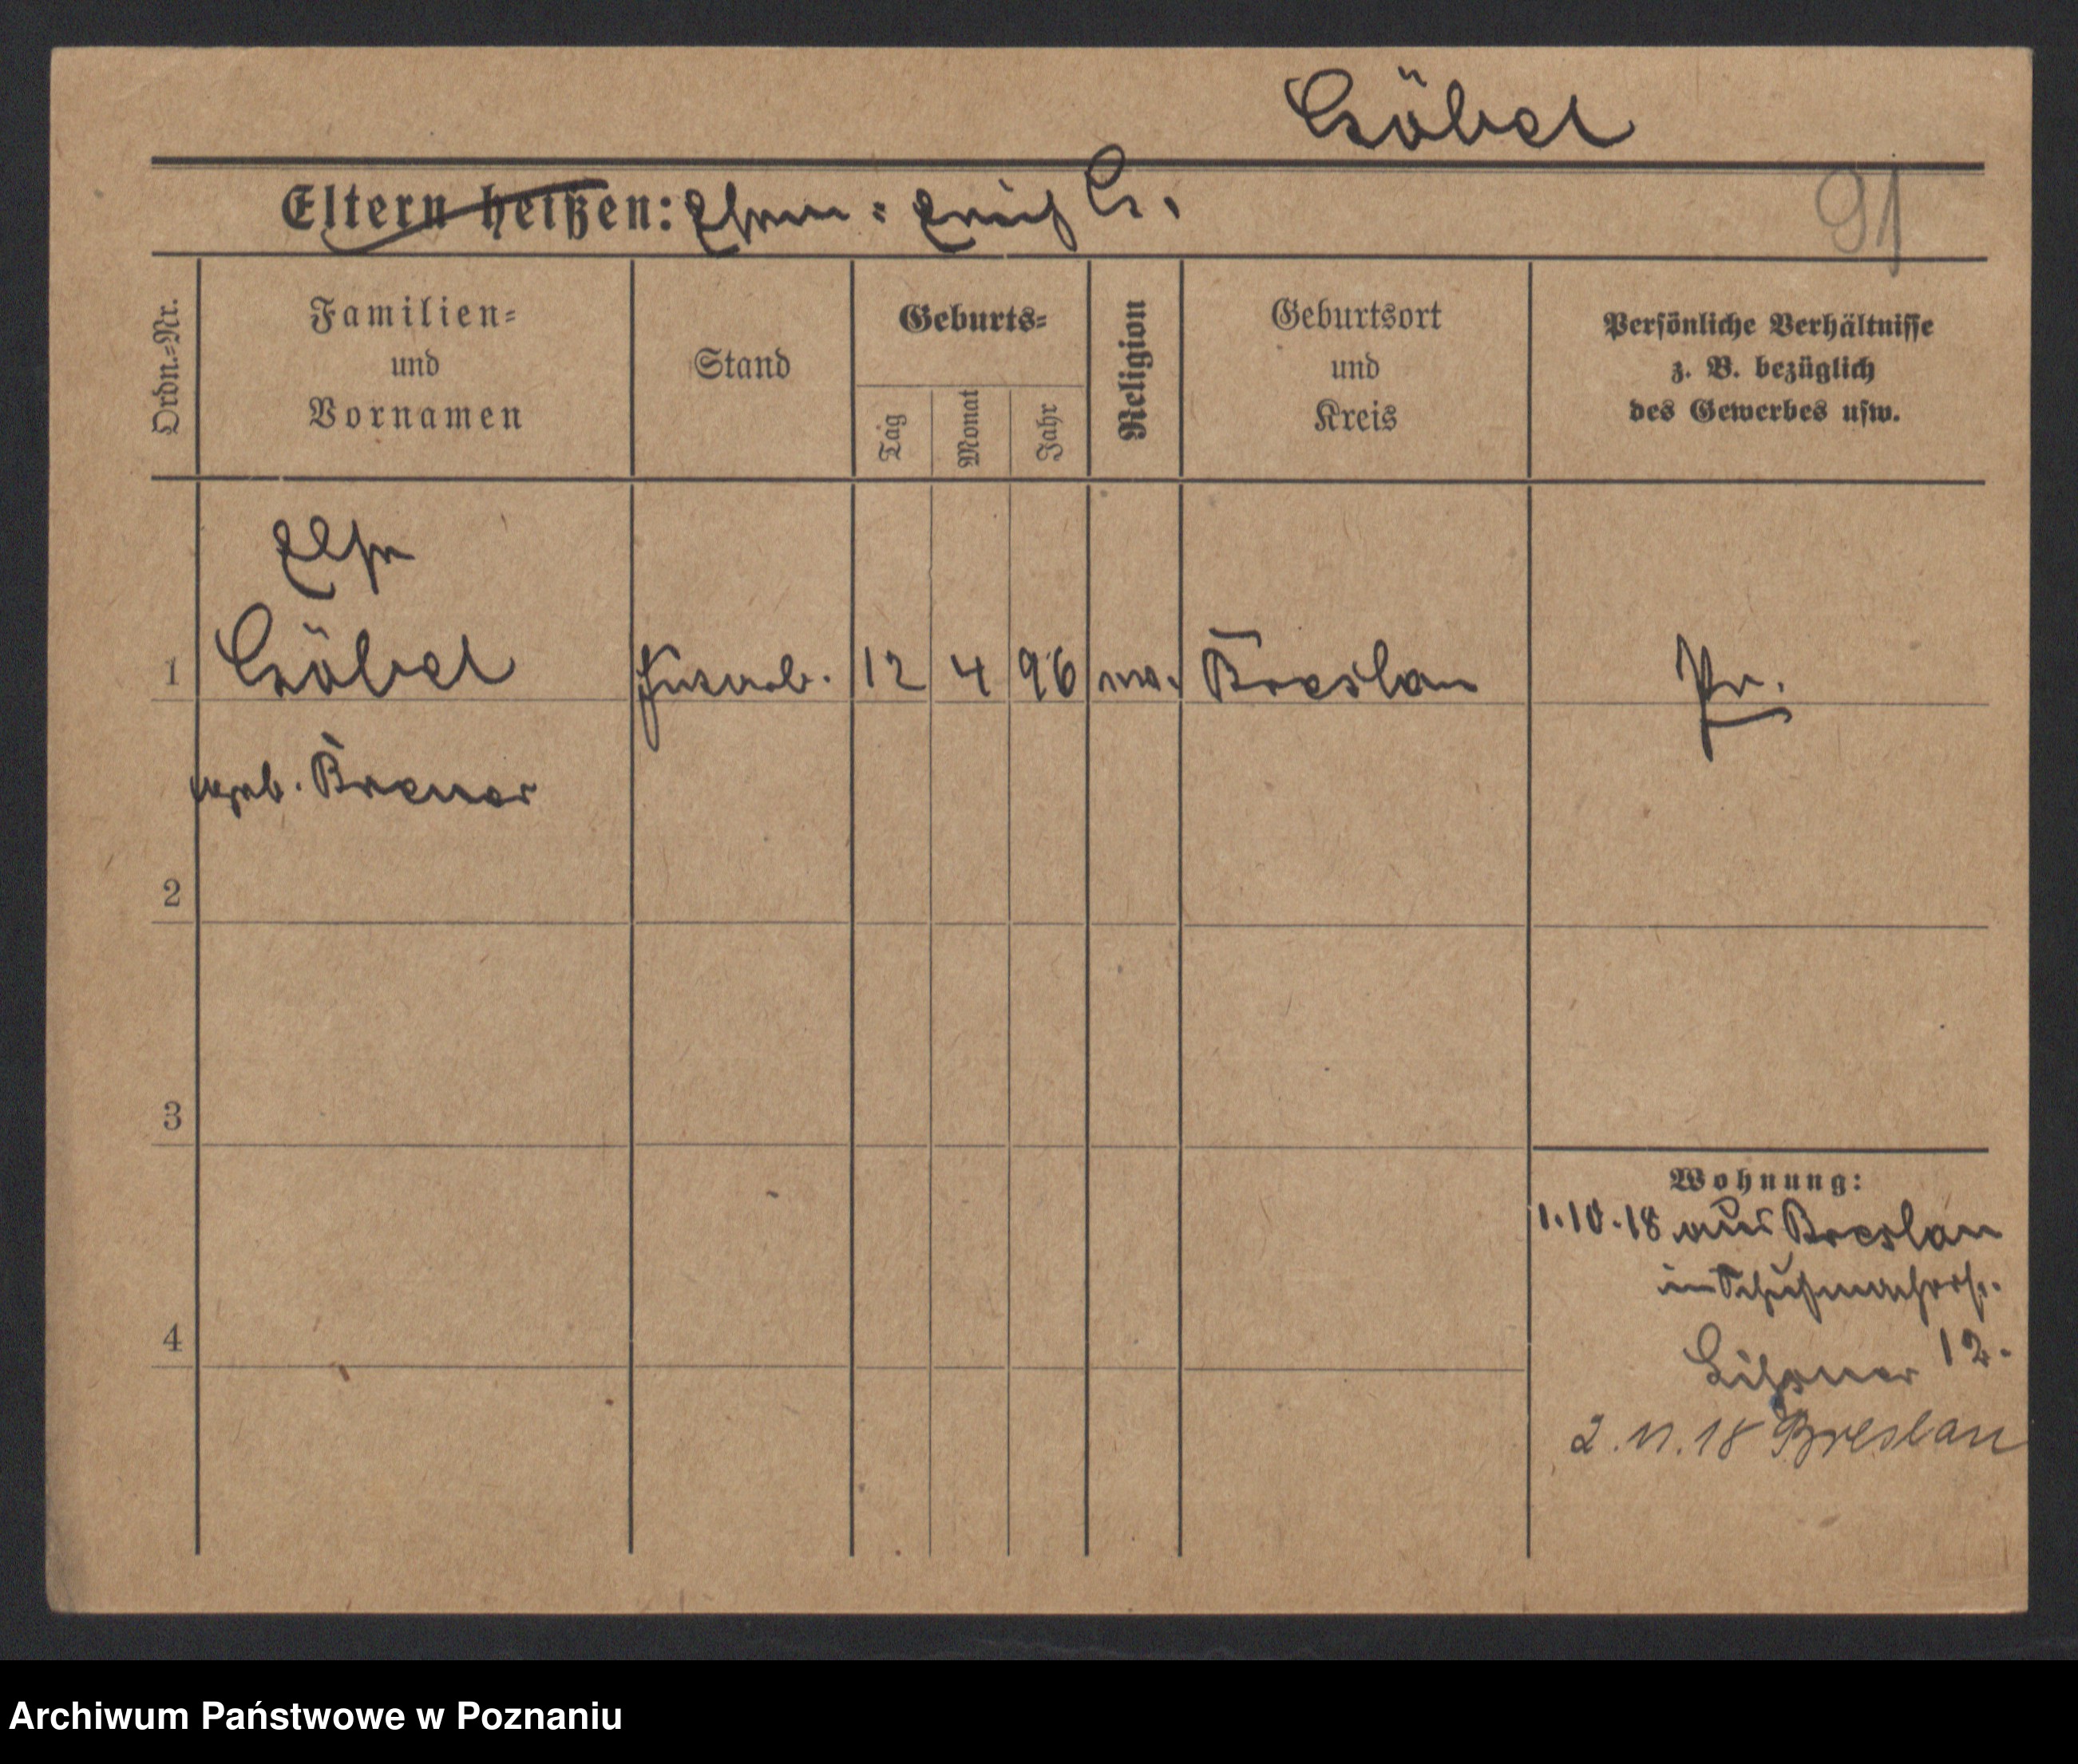 Göbel
Eltern heißen: Ehem: Erich G.
91
Ordn.=Nr.
Familien=
und
Vornamen
Stand
Geburts=
Tag
Monat
Jahr
Religion
Geburtsort
und
Kreis
Persönliche Verhältnisse
z. B. bezüglich
des Gewerbes usw.
Else
1 Göbel 12 4 96 Breslau Pr.
geb. Brener
2
3
Wohnung:
1.10.18 aus Breslau
in Schuhmacherstr.
4
12.
2.11.18 Breslau
Archiwum Państwowe w Poznaniu